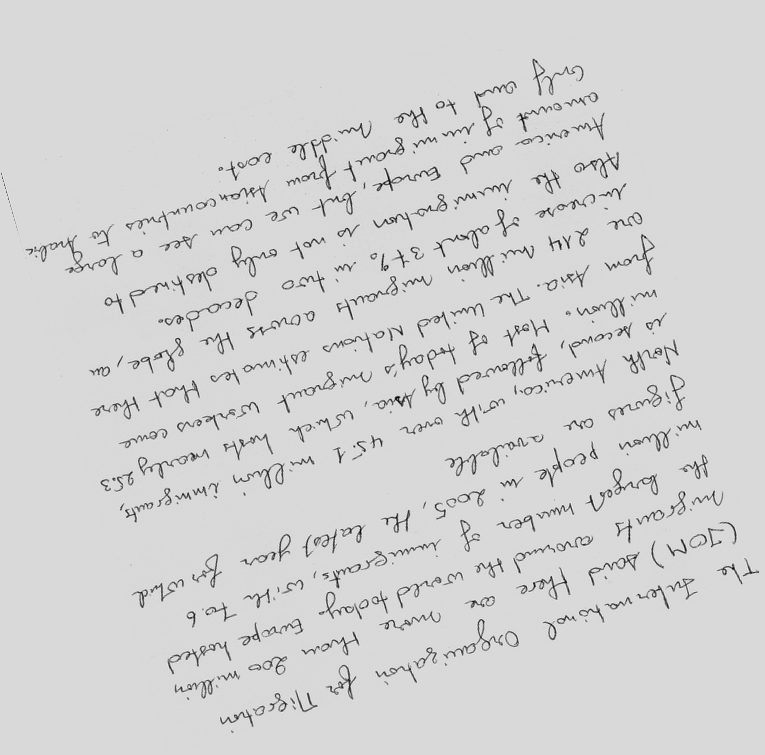 The International Organization for Migration
(IOM) said there are more than 200 million
migrants around the world today. Europe hosted
the largest number of immigrants, with 70.6
million people in 2005, the latest year for which
figures are available
North America, with over 45.1 million immigrants,
is second, followed by Asia, which hosts nearly 25.3
million. Most of today's migrant workers come
from Asia. The United Nations estimates that there
are 214 million migrants across the globe, an
increase of about 37% in two decades.
Also the inmigration is not only destined to
America and Europe, but we can see a large
amount of inmigrant from Asian countries to Arabic
only and to the middle east.